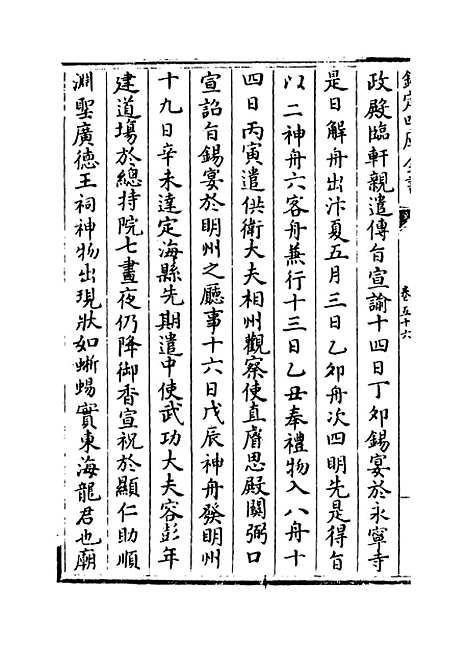 欽定四庫全書
卷五十六
政殿臨軒親遣傳旨宣諭十四日丁夘錫宴於永寧寺
是日解舟出汴夏五月三日乙夘舟次四明先是得旨
以二神舟六客舟兼行十三日乙丑奉禮物入八舟十
四日丙寅遣供衛大夫相州觀察使直睿思殿關弼口
宣詔旨錫宴於明州之廳事十六日戊辰神舟發明州
十九日辛未達定海縣先期遣中使武功大夫容彭年
建道場於總持院七晝夜仍降御香宣祝於顯仁助順
淵聖廣德王祠神物出現狀如蜥蜴實東海龍君也廟